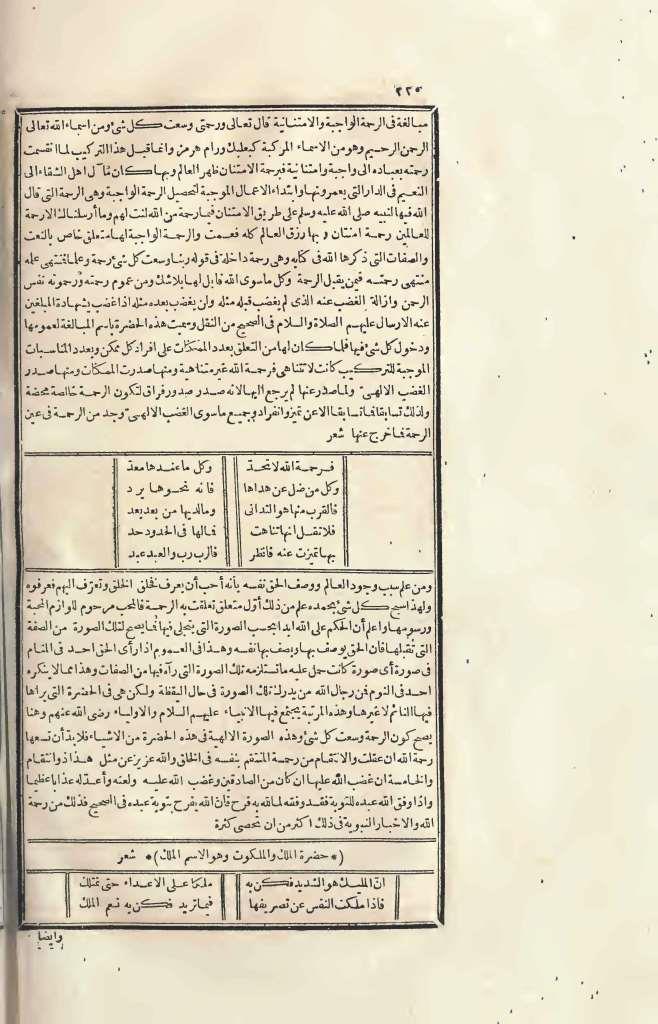 ٢٢٥
مبالغة فى الرحمة الواجبة والامتنانية قال تعالى ورحمتى وسعت كل شئ ومن اسماء الله تعالى
الرحمن الرحيم وهو من الاسماء المركبة كبعلبك ورام هرمز وانما قبل هذا التركيب لما انقسمت
رحمته بعباده الى واجبة وامتنانية فبرحمة الامتنان ظهر العالم وبها كان مآل اهل الشقاء الى
النعيم فى الدار التى يعمرونها وابتداء الاعمال الموجبة لتحصيل الرحمة الواجبة وهى الرحمة التى قال
الله فيها لنبيه صلى الله عليه وسلم على طريق الامتنان فبما رحمة من الله لنت لهم وما أرسلناك الا رحمة
للعالمين رحمة امتنان وبها رزق العالم كله فعمت والرحمة الواجبة لها متعلق خاص بالنعت
والصفات التى ذكرها الله فى كتابه وهى رحمة داخلة فى قوله ربنا وسعت كل شئ رحمة وعلما فمنتهى علمه
منتهى رحمته فيمن يقبل الرحمة وكل ما سوى الله قابل لها بلا شك ومن عموم رحمته ورحموته نفس
الرحمن وازالة الغضب عنه الذى لم يغضب قبله مثله ولن يغضب بعده مثله اذا غضب بشهادة المبلغين
عنه الارسال عليهم الصلاة والسلام فى الصحيح من النقل وسميت هذه الحضرة باسم المبالغة لعمومها
ودخول كل شئ فيها فلما كان لها من التعلق بعدد الممكنات على افراد كل ممكن وبعدد المناسبات
الموجبة للتركيب كانت لا تتناهى فرحمة الله غير متناهية ومنها صدرت الممكنات ومنها صدر
الغضب الالهى ولما صدر عنها لم يرجع اليها لانه صدر صدور فراق لتكون الرحمة خالصة محضة
ولذلك تسابقا فما تسابقا الا عن تميز وانفراد وجميع ما سوى الغضب الالهى وجد من الرحمة فى عين
الرحمة فما خرج عنها شعر
فرحمة الله لا تحدّ وكل ما عندها معدّ
وكل من ضل عن هداها فانه نحوها يرد
فالقرب منها هو التدانى وما لديها من بعد بعد
فلا تقل انها تناهت فما لها فى الحدود حد
بها تميزت عنه فانظر فالرب رب والعبد عبد
ومن علم سبب وجود العالم ووصف الحق نفسه بأنه أحب أن يعرف فخلق الخلق وتعرّف اليهم فعرفوه
ولهذا سبح كل شئ بحمده علم من ذلك أوّل متعلق تعلقت به الرحمة فالمحب مرحوم للوازم المحبة
ورسومها واعلم أن الحكم على الله ابدا بحسب الصورة التى يتجلى فيها فما يصح لتلك الصورة من الصفة
التى تقبلها فان الحق يوصف بها ويصف بها نفسه وهذا فى العموم اذا رأى الحق احد فى المنام
فى صورة أى صورة كانت حمل عليه ما تستلزمه تلك الصورة التى رآه فيها من الصفات وهذا مما لا ينكره
احد فى النوم فمن رجال الله من يدرك تلك الصورة فى حال اليقظة ولكن هى فى الحضرة التى يراها
فيها النائم لا غيرها وهذه المرتبة يجتمع فيها الانبياء عليهم السلام والاولياء رضى الله عنهم وهنا
يصح كون الرحمة وسعت كل شئ وهذه الصورة الالهية فى هذه الحضرة من الاشياء فلا بد أن تسعها
رحمة الله ان عقلت والانتقام من رحمة المنتقم بنفسه فى الخلق والله عزيز عن مثل هذا ذو انتقام
والخامسة ان غضب الله عليها ان كان من الصادقين وغضب الله عليه ولعنه وأعد له عذابا عظيما
واذا وفق الله عبده للتوبة فقد وفقه لما لله به فرح فان الله يفرح بتوبة عبده فى الصحيح فذلك من رحمة
الله والاخبار النبوية فى ذلك اكثر من ان تحصى كثرة
(* حضرة الملك والملكوت وهو الاسم الملك) * شعر
انّ المليك هو الشديد فكن به ملكا على الاعداء حتى تمتلك
فاذا ملكت النفس عن تصريفها فيما تريد فكن به نعم الملك
وايضا